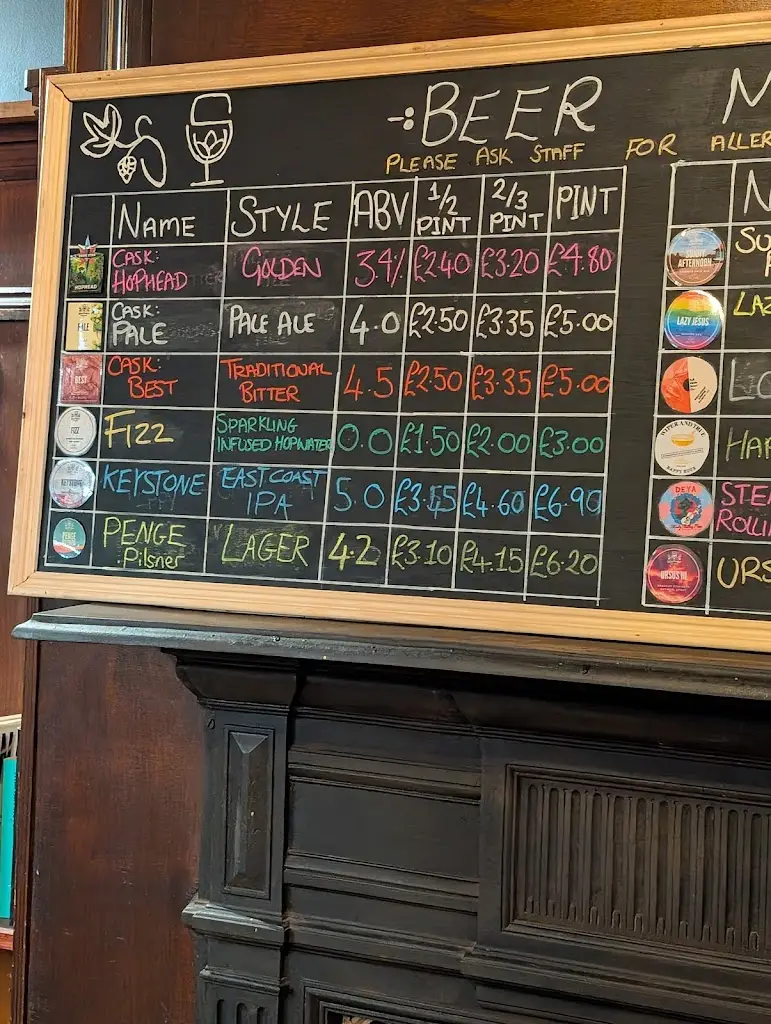 BEER M
PLEASE ASK STAFF FOR ALLER
NAME STYLE ABV 1/2 PINT 2/3 PINT PINT N
CASK: HOPHEAD GOLDEN 3.4% £2.40 £3.20 £4.80
CASK: PALE PALE ALE 4.0 £2.50 £3.35 £5.00
CASK: BEST TRADITIONAL BITTER 4.5 £2.50 £3.35 £5.00
FIZZ SPARKLING INFUSED HOPWATER 0.0 £1.50 £2.00 £3.00
KEYSTONE EAST COAST IPA 5.0 £3.45 £4.60 £6.90
PENGE Pilsner LAGER 4.2 £3.10 £4.15 £6.20
HOPHEAD
PALE
BEST
FIZZ
KEYSTONE
PENGE
AFTERNOON
SU
LAZY JESUS
LAZ
LO
HAPPY HOUR
HAP
DEYA
STEA
ROLLI
URSUS III
URS